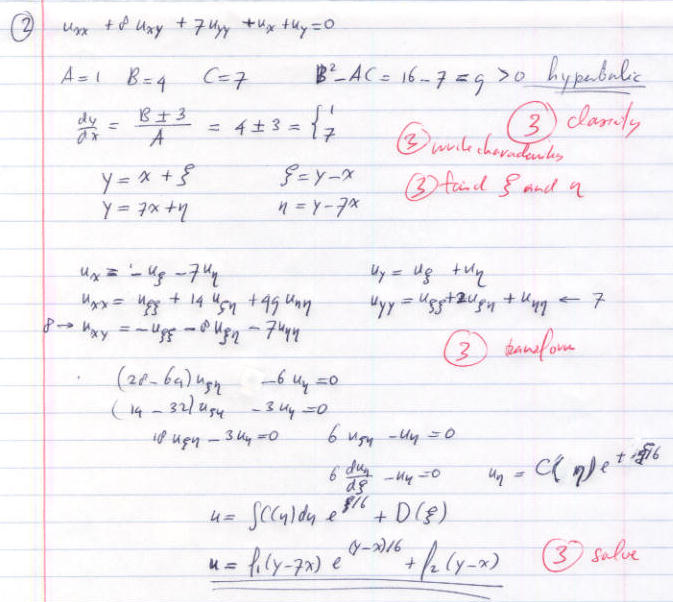 ② uxx + 8 uxy + 7 uyy + ux + uy = 0
A = 1 B = 4 C = 7 B² - AC = 16 - 7 = 9 > 0 hyperbolic
③ classify
dy/dx = B ± 3 / A = 4 ± 3 = { 1 7
③ write characteristics
y = x + ξ ξ = y - x ③ find ξ and η
y = 7x + η η = y - 7x
ux = -uξ - 7uη uy = uξ + uη
uxx = uξξ + 14 uξη + 49 uηη uyy = uξξ + 2uξη + uηη ← 7
8 → uxy = -uξξ - 8 uξη - 7uηη
③ transform
(28 - 64) uξη - 6 uη = 0
(14 - 32) uξη - 3 uη = 0
18 uξη - 3 uη = 0 6 uξη - uη = 0
6 duη/dξ - uη = 0 uη = C(η) e^{+ξ/6}
u = ∫C(η)dη e^{ξ/6} + D(ξ)
u = f₁(y-7x) e^{(y-x)/6} + f₂(y-x) ③ solve